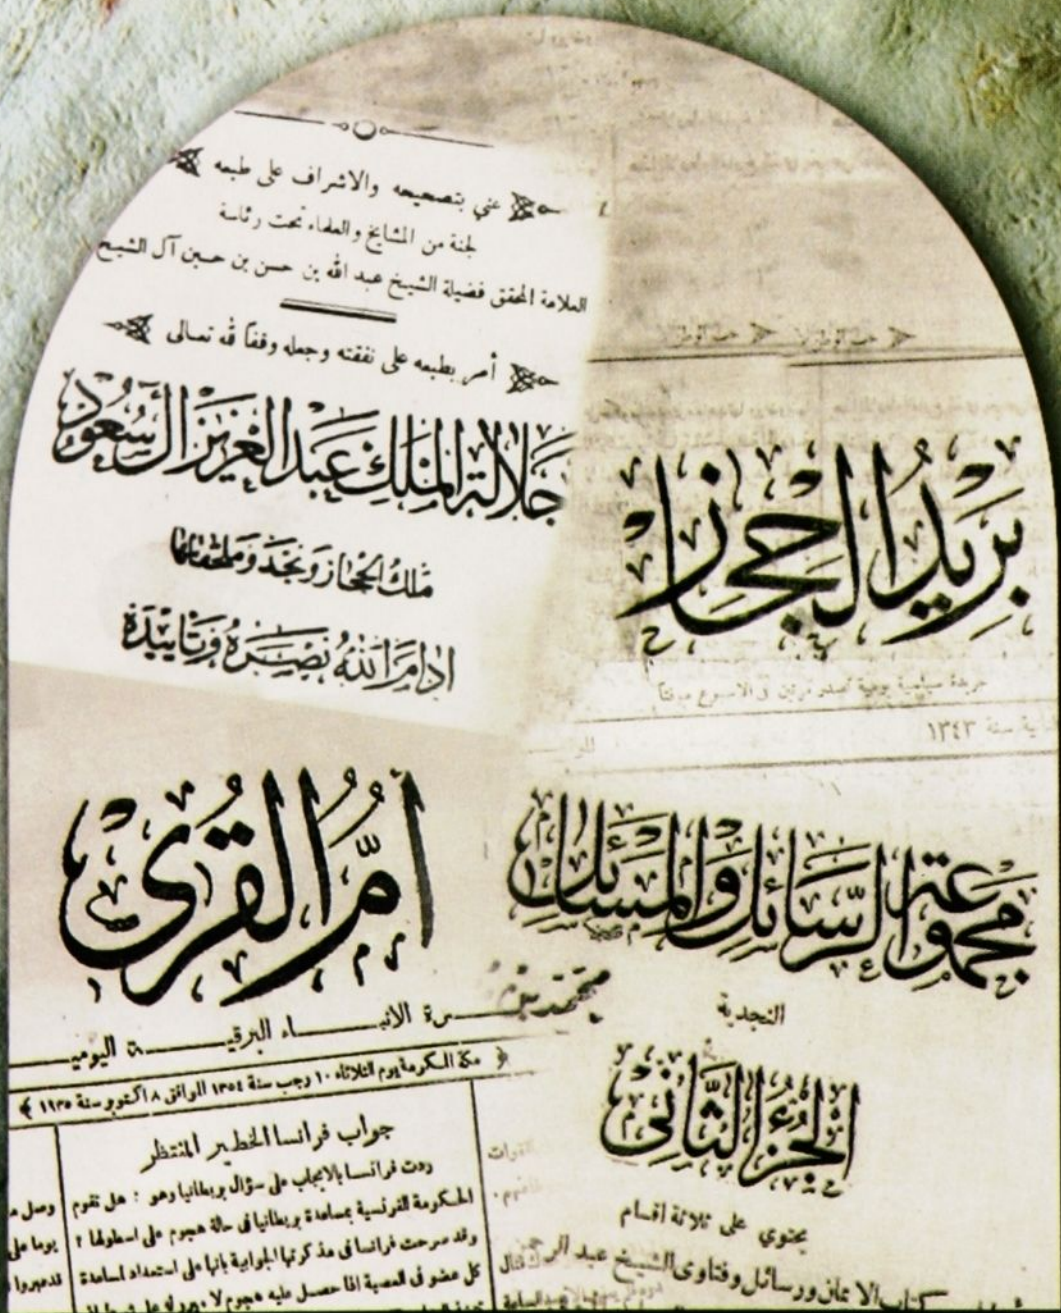 عني بتصحيحه والاشراف على طبعه
لجنة من المشايخ والعلماء تحت رئاسة
العلامة المحقق فضيلة الشيخ عبد الله بن حسن بن حسين آل الشيخ
أمر بطبعه على نفقته وجعله وقفاً لله تعالى
جلالة الملك عبد العزيز آل سعود
ملك الحجاز ونجد وملحقاتها
ادام الله نصره وتأييده
بريد الحجاز
جريدة سياسية يومية تصدر مرتين في الاسبوع موقتاً
سنة ١٣٤٣
أم القرى
نشرة الانباء البرقية اليومية
مكة المكرمة يوم الثلاثاء ١٠ رجب سنة ١٣٥٤ الموافق ٨ اكتوبر سنة ١٩٣٥
جواب فرانسا الخطير المنتظر
ردت فرانسا بالايجاب على سؤال بريطانيا وهو : هل تقوم
الحكومة الفرنسية بمساعدة بريطانيا في حالة هجوم على اسطولها ؟
وقد صرحت فرانسا في مذكرتها الجوابية بانها على استعداد لمساعدة
كل عضو في العصبة اذا حصل عليه هجوم
وصل
يوما على
مجموعة الرسائل والمسائل
النجدية
الجزء الثاني
يحتوي على ثلاثة اقسام
كتاب الايمان ورسائل وفتاوى الشيخ عبد الرحمن